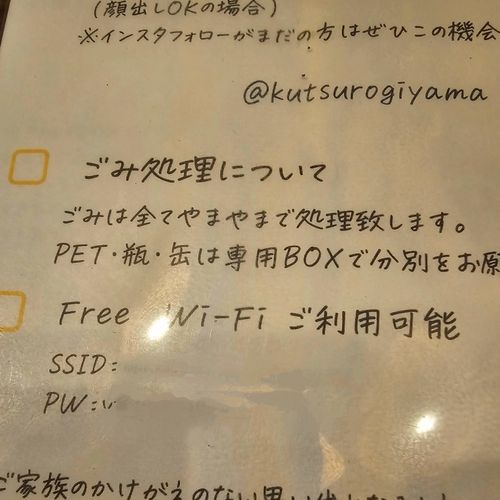 (顔出しOKの場合)
※インスタフォローがまだの方はぜひこの機会
@kutsurogiyama
ごみ処理について
ごみは全てやまやまで処理致します。
PET・瓶・缶は専用BOXで分別をお願
Free Wi-Fi ご利用可能
SSID:
PW:
ご家族のかけがえのない思い出